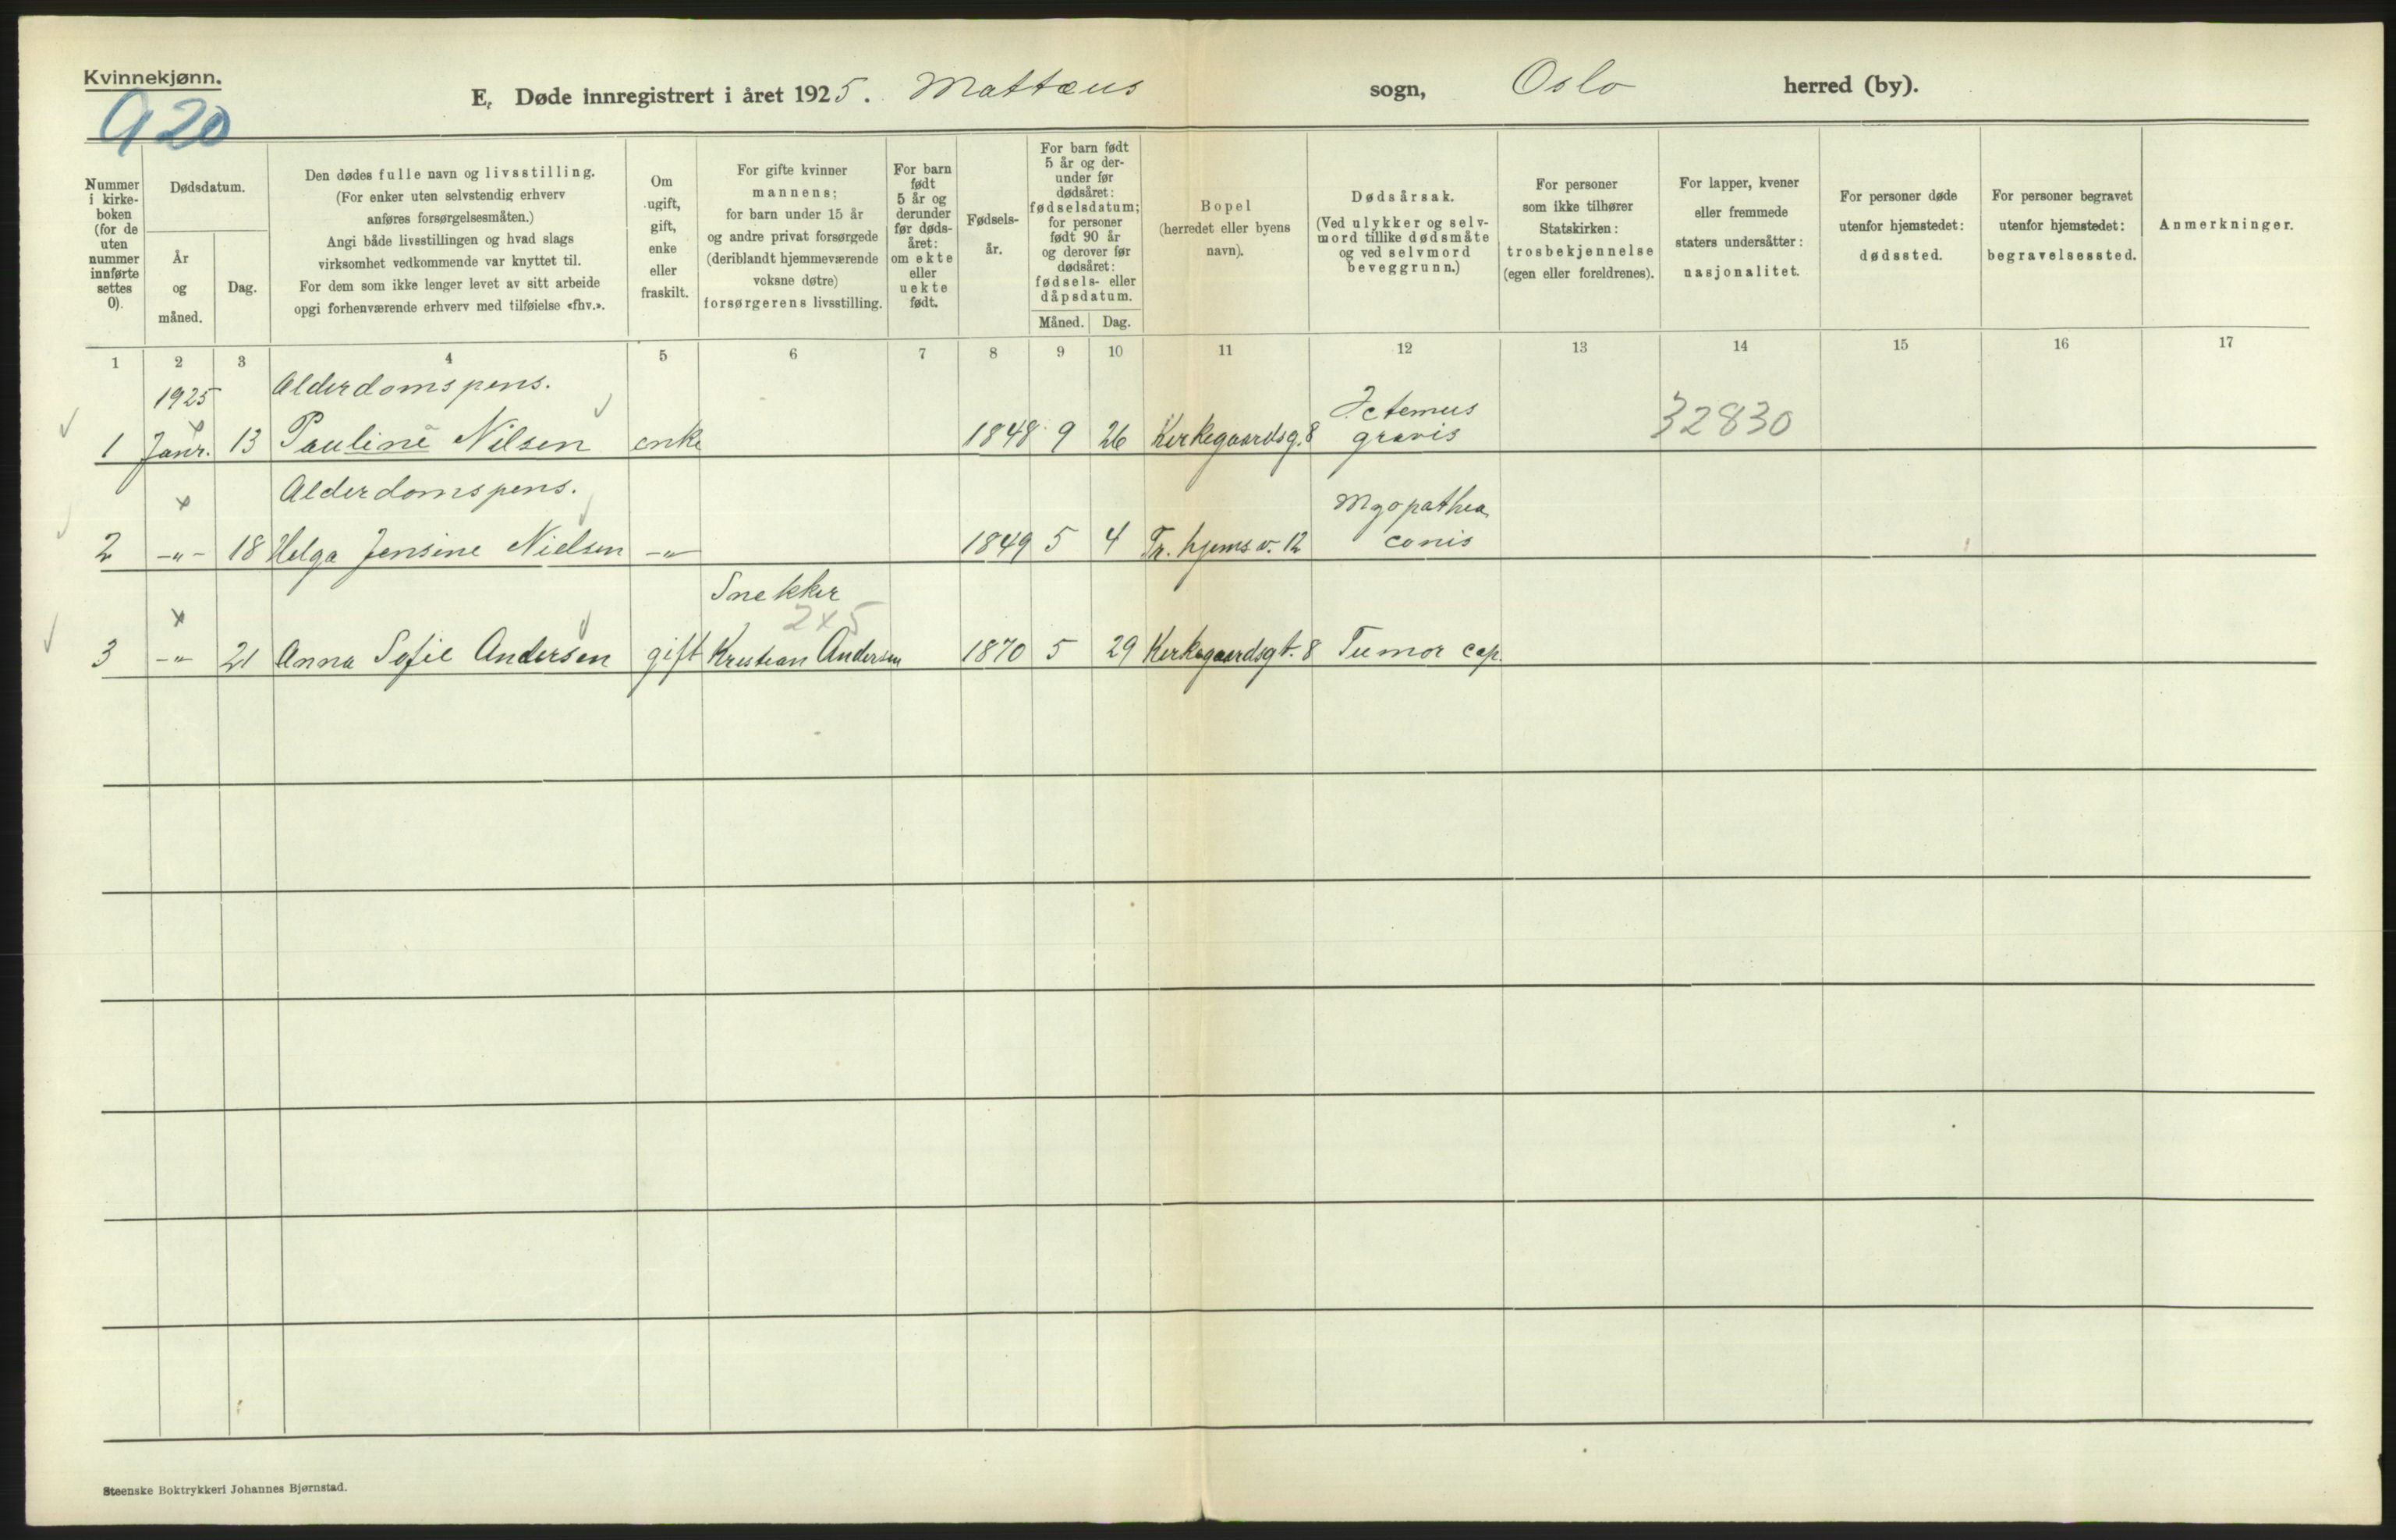 Kvinnekjønn.
920
E. Døde innregistrert i året 1925. Mattæus sogn, Oslo herred (by).
Nummer i kirke-boken (for de uten nummer innførte settes 0).
Dødsdatum.
År og måned.
Dag.
Den dødes fulle navn og livsstilling.
(For enker uten selvstendig erhverv
anføres forsørgelsesmåten.)
Angi både livsstillingen og hvad slags
virksomhet vedkommende var knyttet til.
For dem som ikke lenger levet av sitt arbeide
opgi forhenværende erhverv med tilføielse «fhv.».
Om
ugift,
gift,
enke
eller
fraskilt.
For gifte kvinner
mannens;
for barn under 15 år
og andre privat forsørgede
(deriblandt hjemmeværende
voksne døtre)
forsørgerens livsstilling.
For barn
født
5 år og
derunder
før døds-
året:
om ekte
eller
uekte
født.
Fødsels-
år.
For barn født
5 år og der-
under før
dødsåret:
fødselsdatum;
for personer
født 90 år
og derover før
dødsåret:
fødsels- eller
dåpsdatum.
Måned. Dag.
Bopel
(herredet eller byens
navn).
Dødsårsak.
(Ved ulykker og selv-
mord tillike dødsmåte
og ved selvmord
beveggrunn.)
For personer
som ikke tilhører
Statskirken:
trosbekjennelse
(egen eller foreldrenes).
For lapper, kvener
eller fremmede
staters undersåtter:
nasjonalitet.
For personer døde
utenfor hjemstedet:
dødssted.
For personer begravet
utenfor hjemstedet:
begravelsessted.
Anmerkninger.
1 2 3 4 5 6 7 8 9 10 11 12 13 14 15 16 17
1925 Alderdomspens. Ictemus
1 Janr. 13 Pauline Nilsen enke 1848 9 26 Kirkegaardsg. 8 gravis 32830
Alderdomspens. Myopathia
2 -"- 18 Helga Jensine Nielsen -"- 1849 5 4 Tr. hjems v. 12 conis
Snekker
2x5
3 -"- 21 Anna Sofie Andersen gift Kristian Andersen 1870 5 29 Kirkegaardsgt. 8 Tumor cap.
Steenske Boktrykkeri Johannes Bjørnstad.